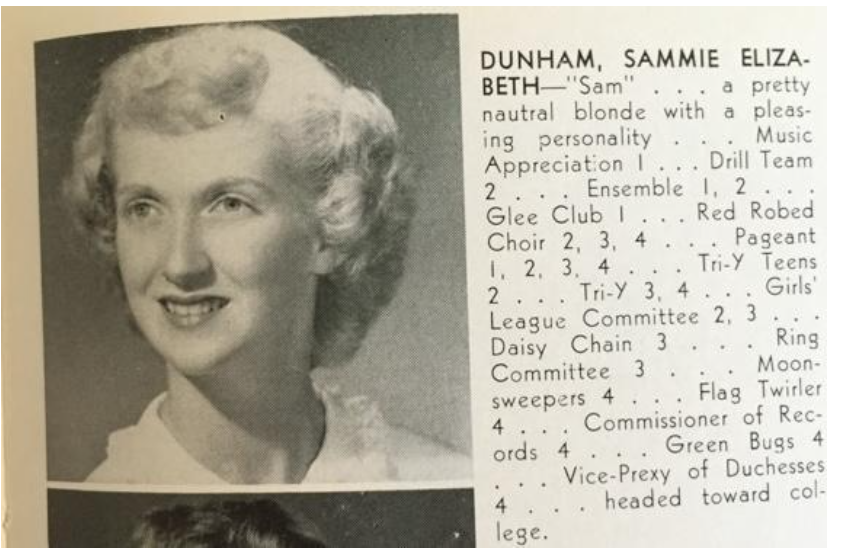 DUNHAM, SAMMIE ELIZA-
BETH—"Sam" . . . a pretty
nautral blonde with a pleas-
ing personality . . . . Music
Appreciation 1 . . . Drill Team
2 . . . . Ensemble 1, 2 . . .
Glee Club 1 . . . Red Robed
Choir 2, 3, 4 . . . . Pageant
1, 2, 3, 4 . . . . Tri-Y Teens
2 . . . Tri-Y 3, 4 . . . Girls'
League Committee 2, 3 . . .
Daisy Chain 3 . . . . Ring
Committee 3 . . . . Moon-
sweepers 4 . . . Flag Twirler
4 . . . Commissioner of Rec-
ords 4 . . . . Green Bugs 4
. . . Vice-Prexy of Duchesses
4 . . . . headed toward col-
lege.